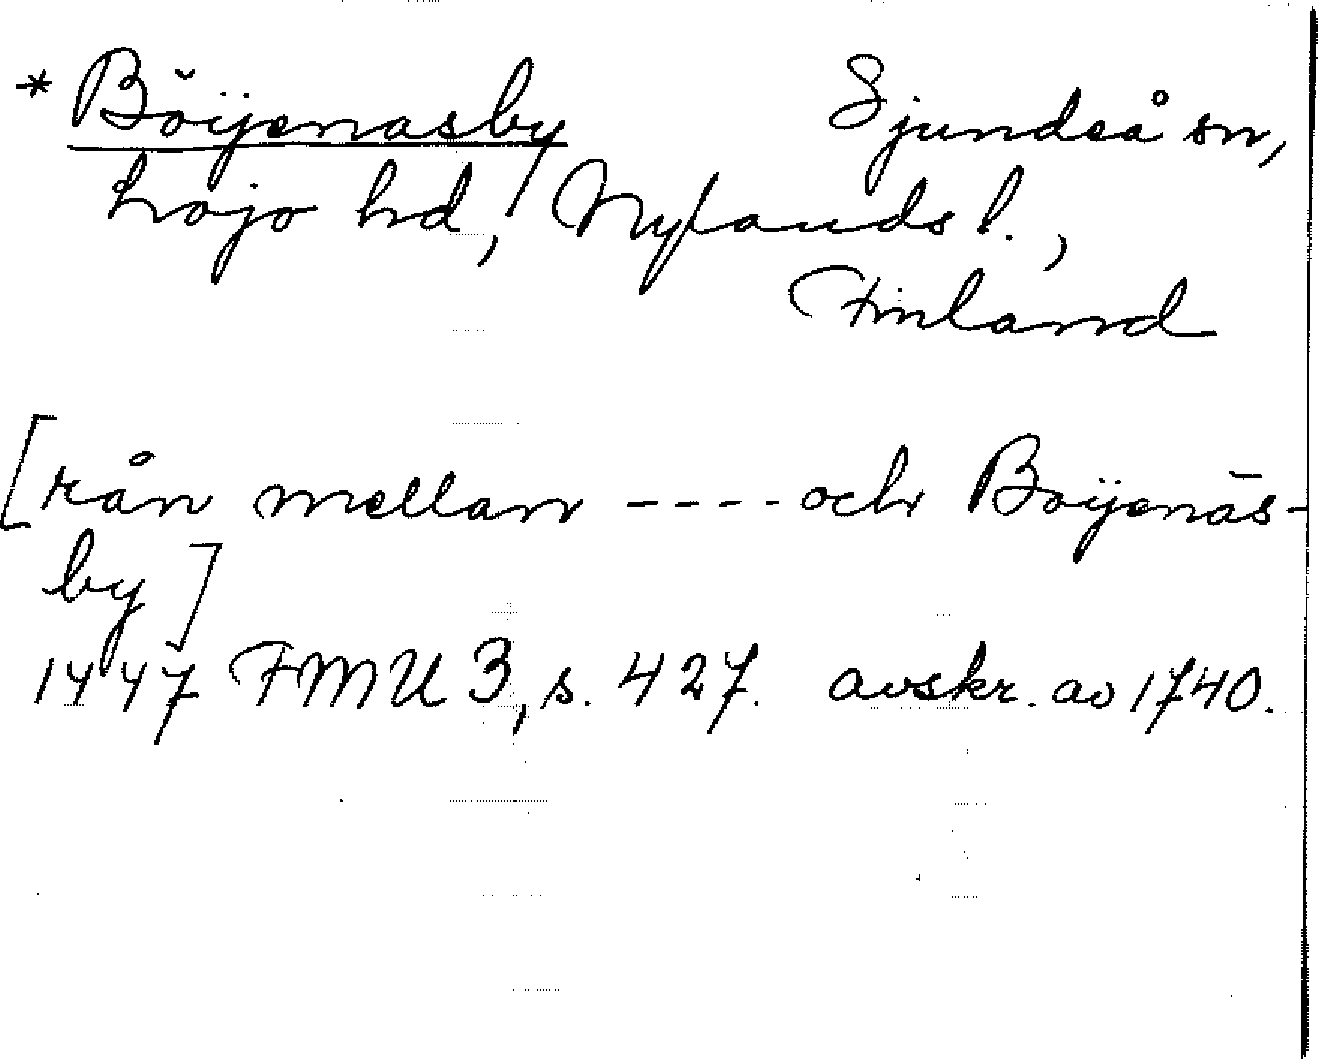 * Böÿenasby Sjundeå sn,
Lojo hd, Nylands l.,
Finland
[rån mellan ---- och Boÿenäs-
by]
1447 FMU 3, s. 427. avskr. av 1740.